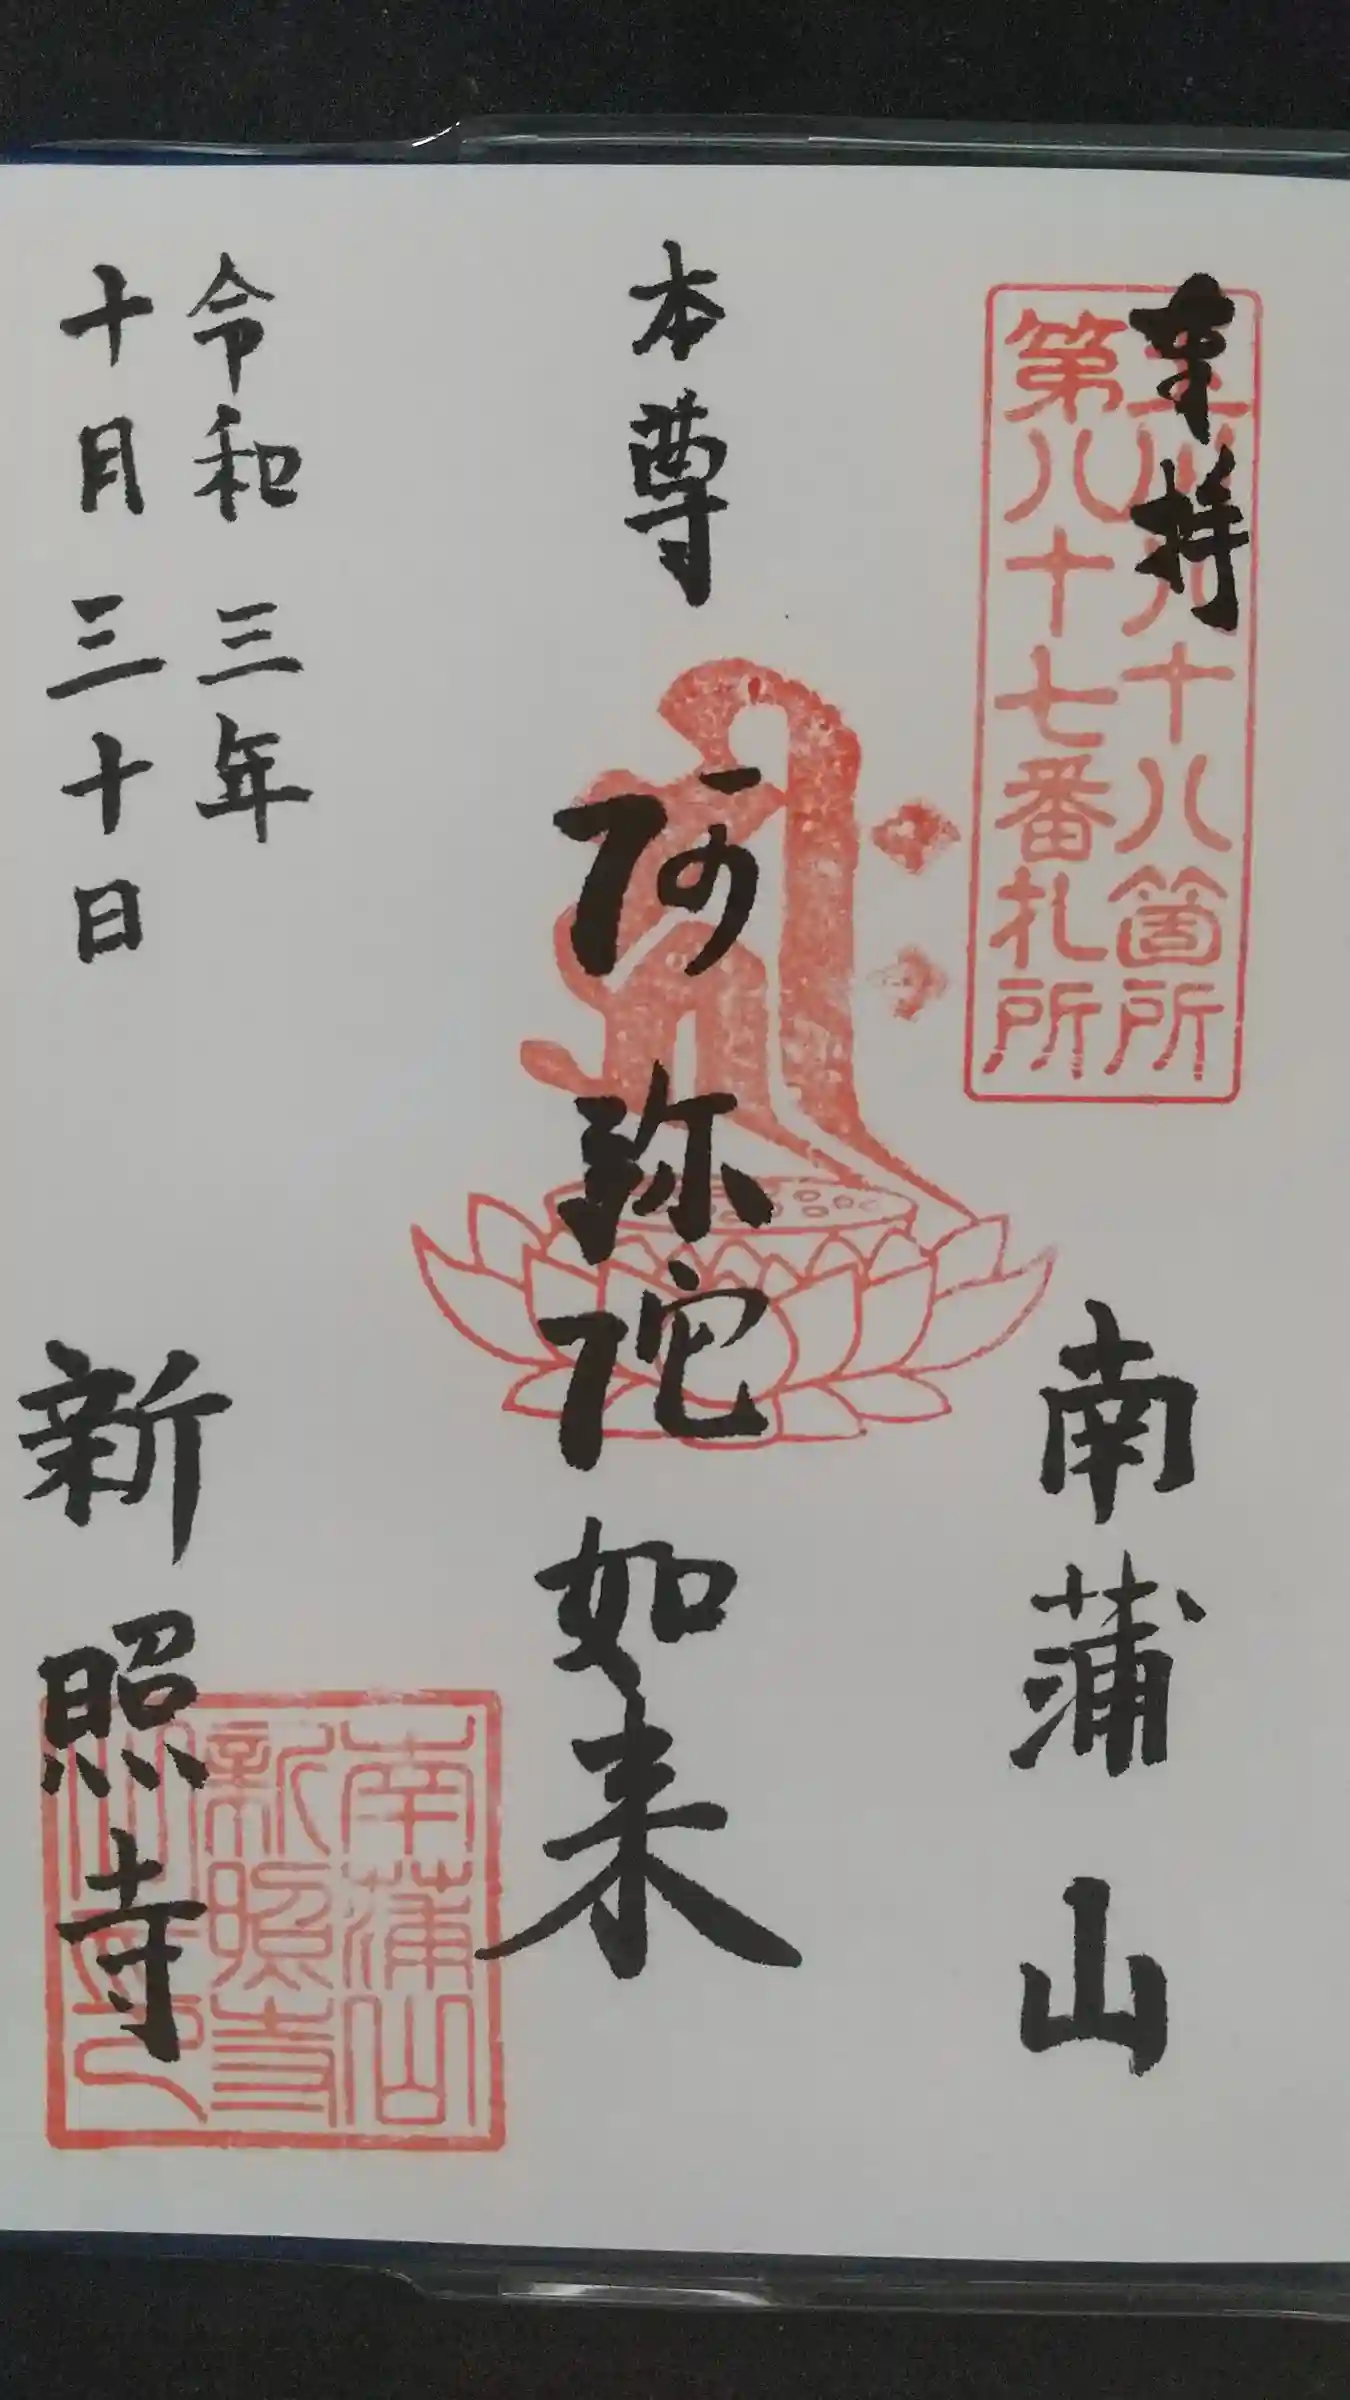 奉拝
玉川八十八箇所
第八十七番札所
南蒲山
本尊
阿弥陀如来
令和三年
十月三十日
新照寺
南蒲山
新照寺